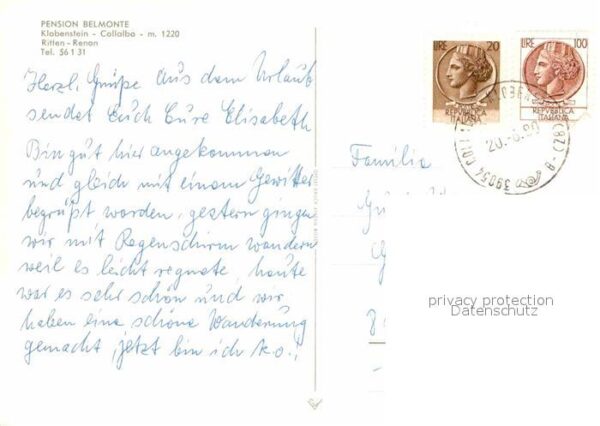 PENSION BELMONTE
Klobenstein - Collalbo - m. 1220
Ritten - Renon
Tel. 56 1 31
Herzl. Grüße aus dem Urlaub
sendet Euch Eure Elisabeth
Bin gut hier angekommen
und gleich mit einem Gewitter
begrüßt worden, gestern gingen
wir mit Regenschirm wandern
weil es leicht regnete, heute
war es sehr schön und wir
haben eine schöne Wanderung
gemacht, jetzt bin ich k.o.!
LIRE 20
REPVBBLICA
ITALIANA
LIRE 100
REPVBBLICA
ITALIANA
39054
(BZ)
Familia
privacy protection
Datenschutz